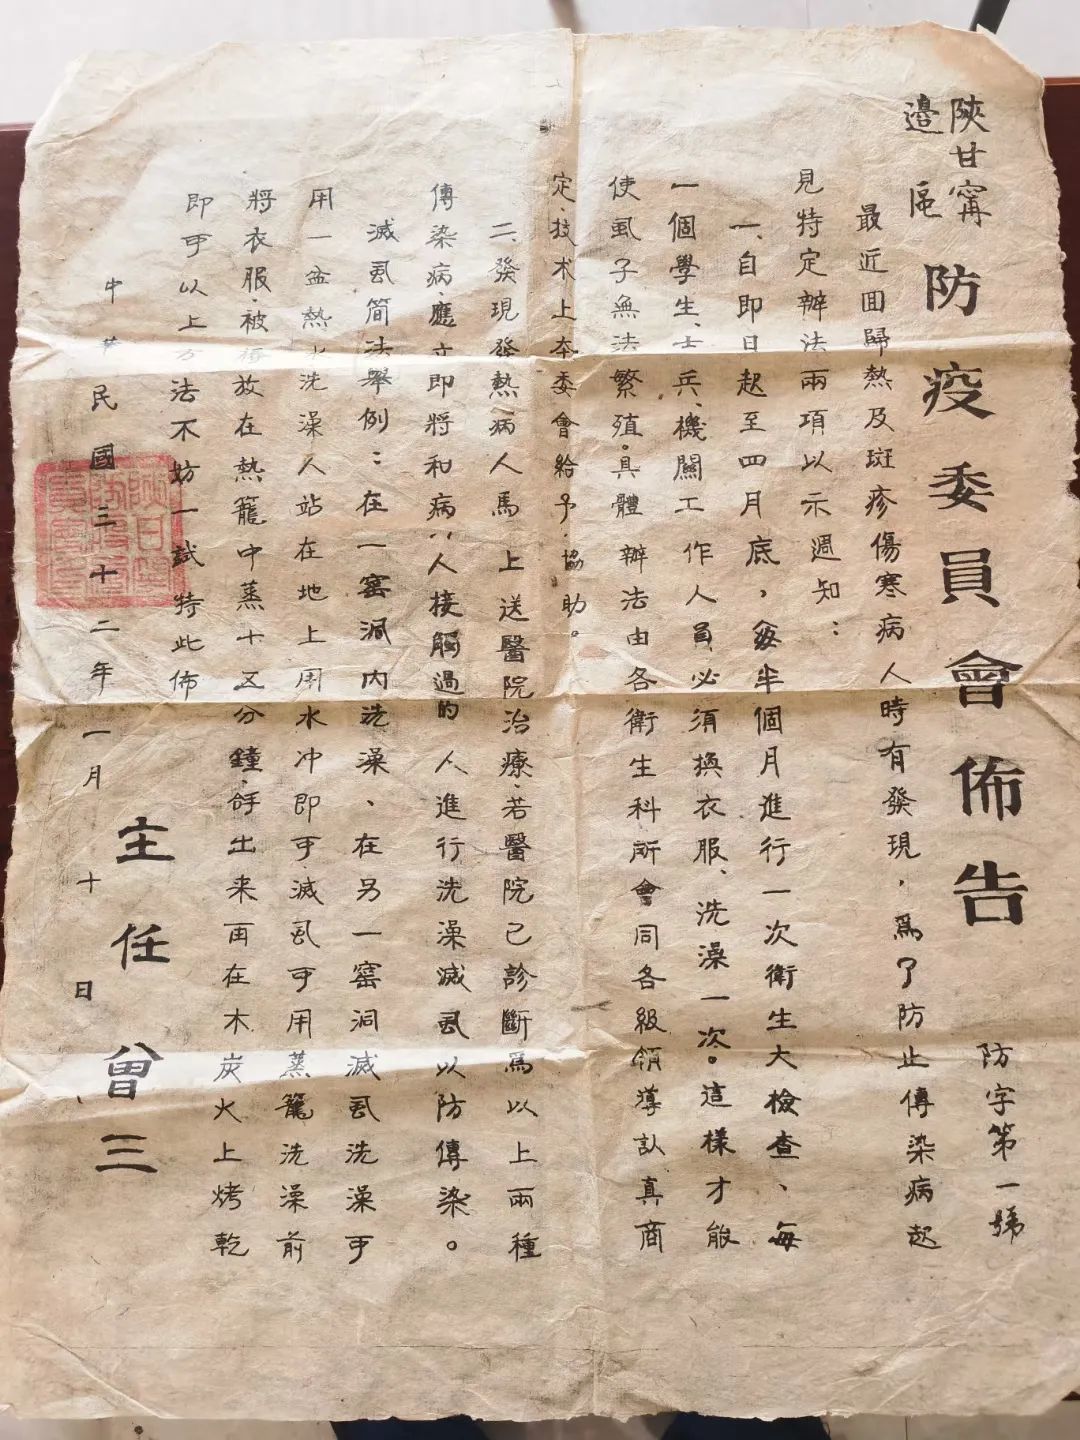 陝甘甯
邊區
防疫委員會佈告
防字第一號
最近囬歸熱及斑疹傷寒病人時有發現，爲了防止傳染病起
見特定辦法兩項以示週知：
一、自即日起至四月底，每半個月進行一次衛生大檢查、每
一個學生、士兵、機關工作人員必須換衣服、洗澡一次。這樣才能
使虱子無法繁殖。具體辦法由各衛生科所會同各級領導認真商
定、技术上本委會給予協助。
二、發現發熱病人馬上送醫院治療、若醫院已診斷爲以上兩種
傳染病、應立即將和病人接觸過的人進行洗澡滅虱以防傳染。
滅虱簡法舉例：在一窑洞内洗澡、在另一窑洞滅虱洗澡可
用一盆熱水洗澡人站在地上用水冲即可滅虱可用蒸籠洗澡前
將衣服、被褥放在熱籠中蒸十五分鐘、取出来再在木炭火上烤乾
即可以上方法不妨一試特此佈
主任曾三
中华民國三十二年一月十日